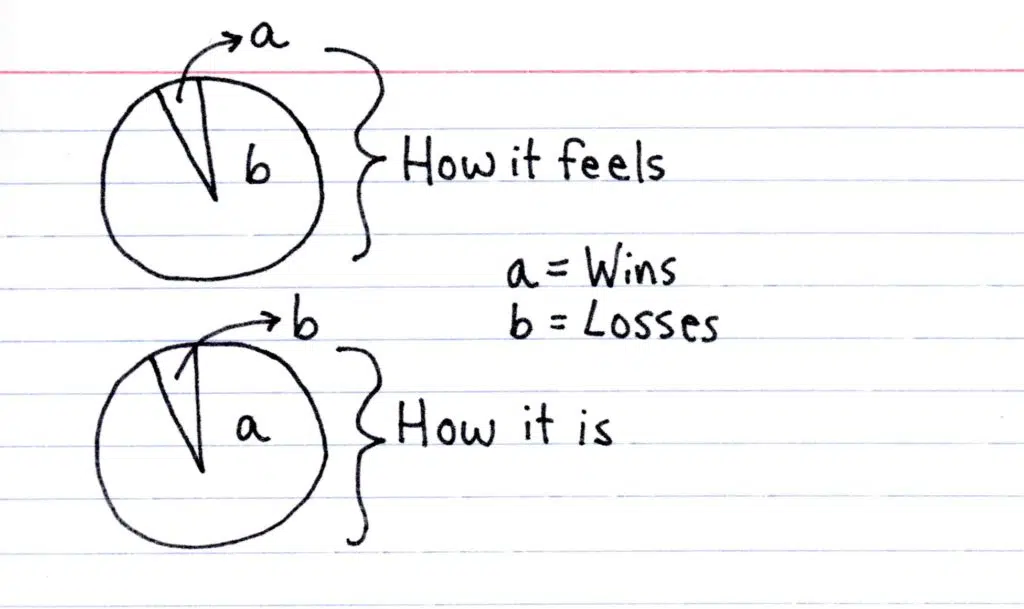 a
b
How it feels
a = Wins
b = Losses
b
a
How it is